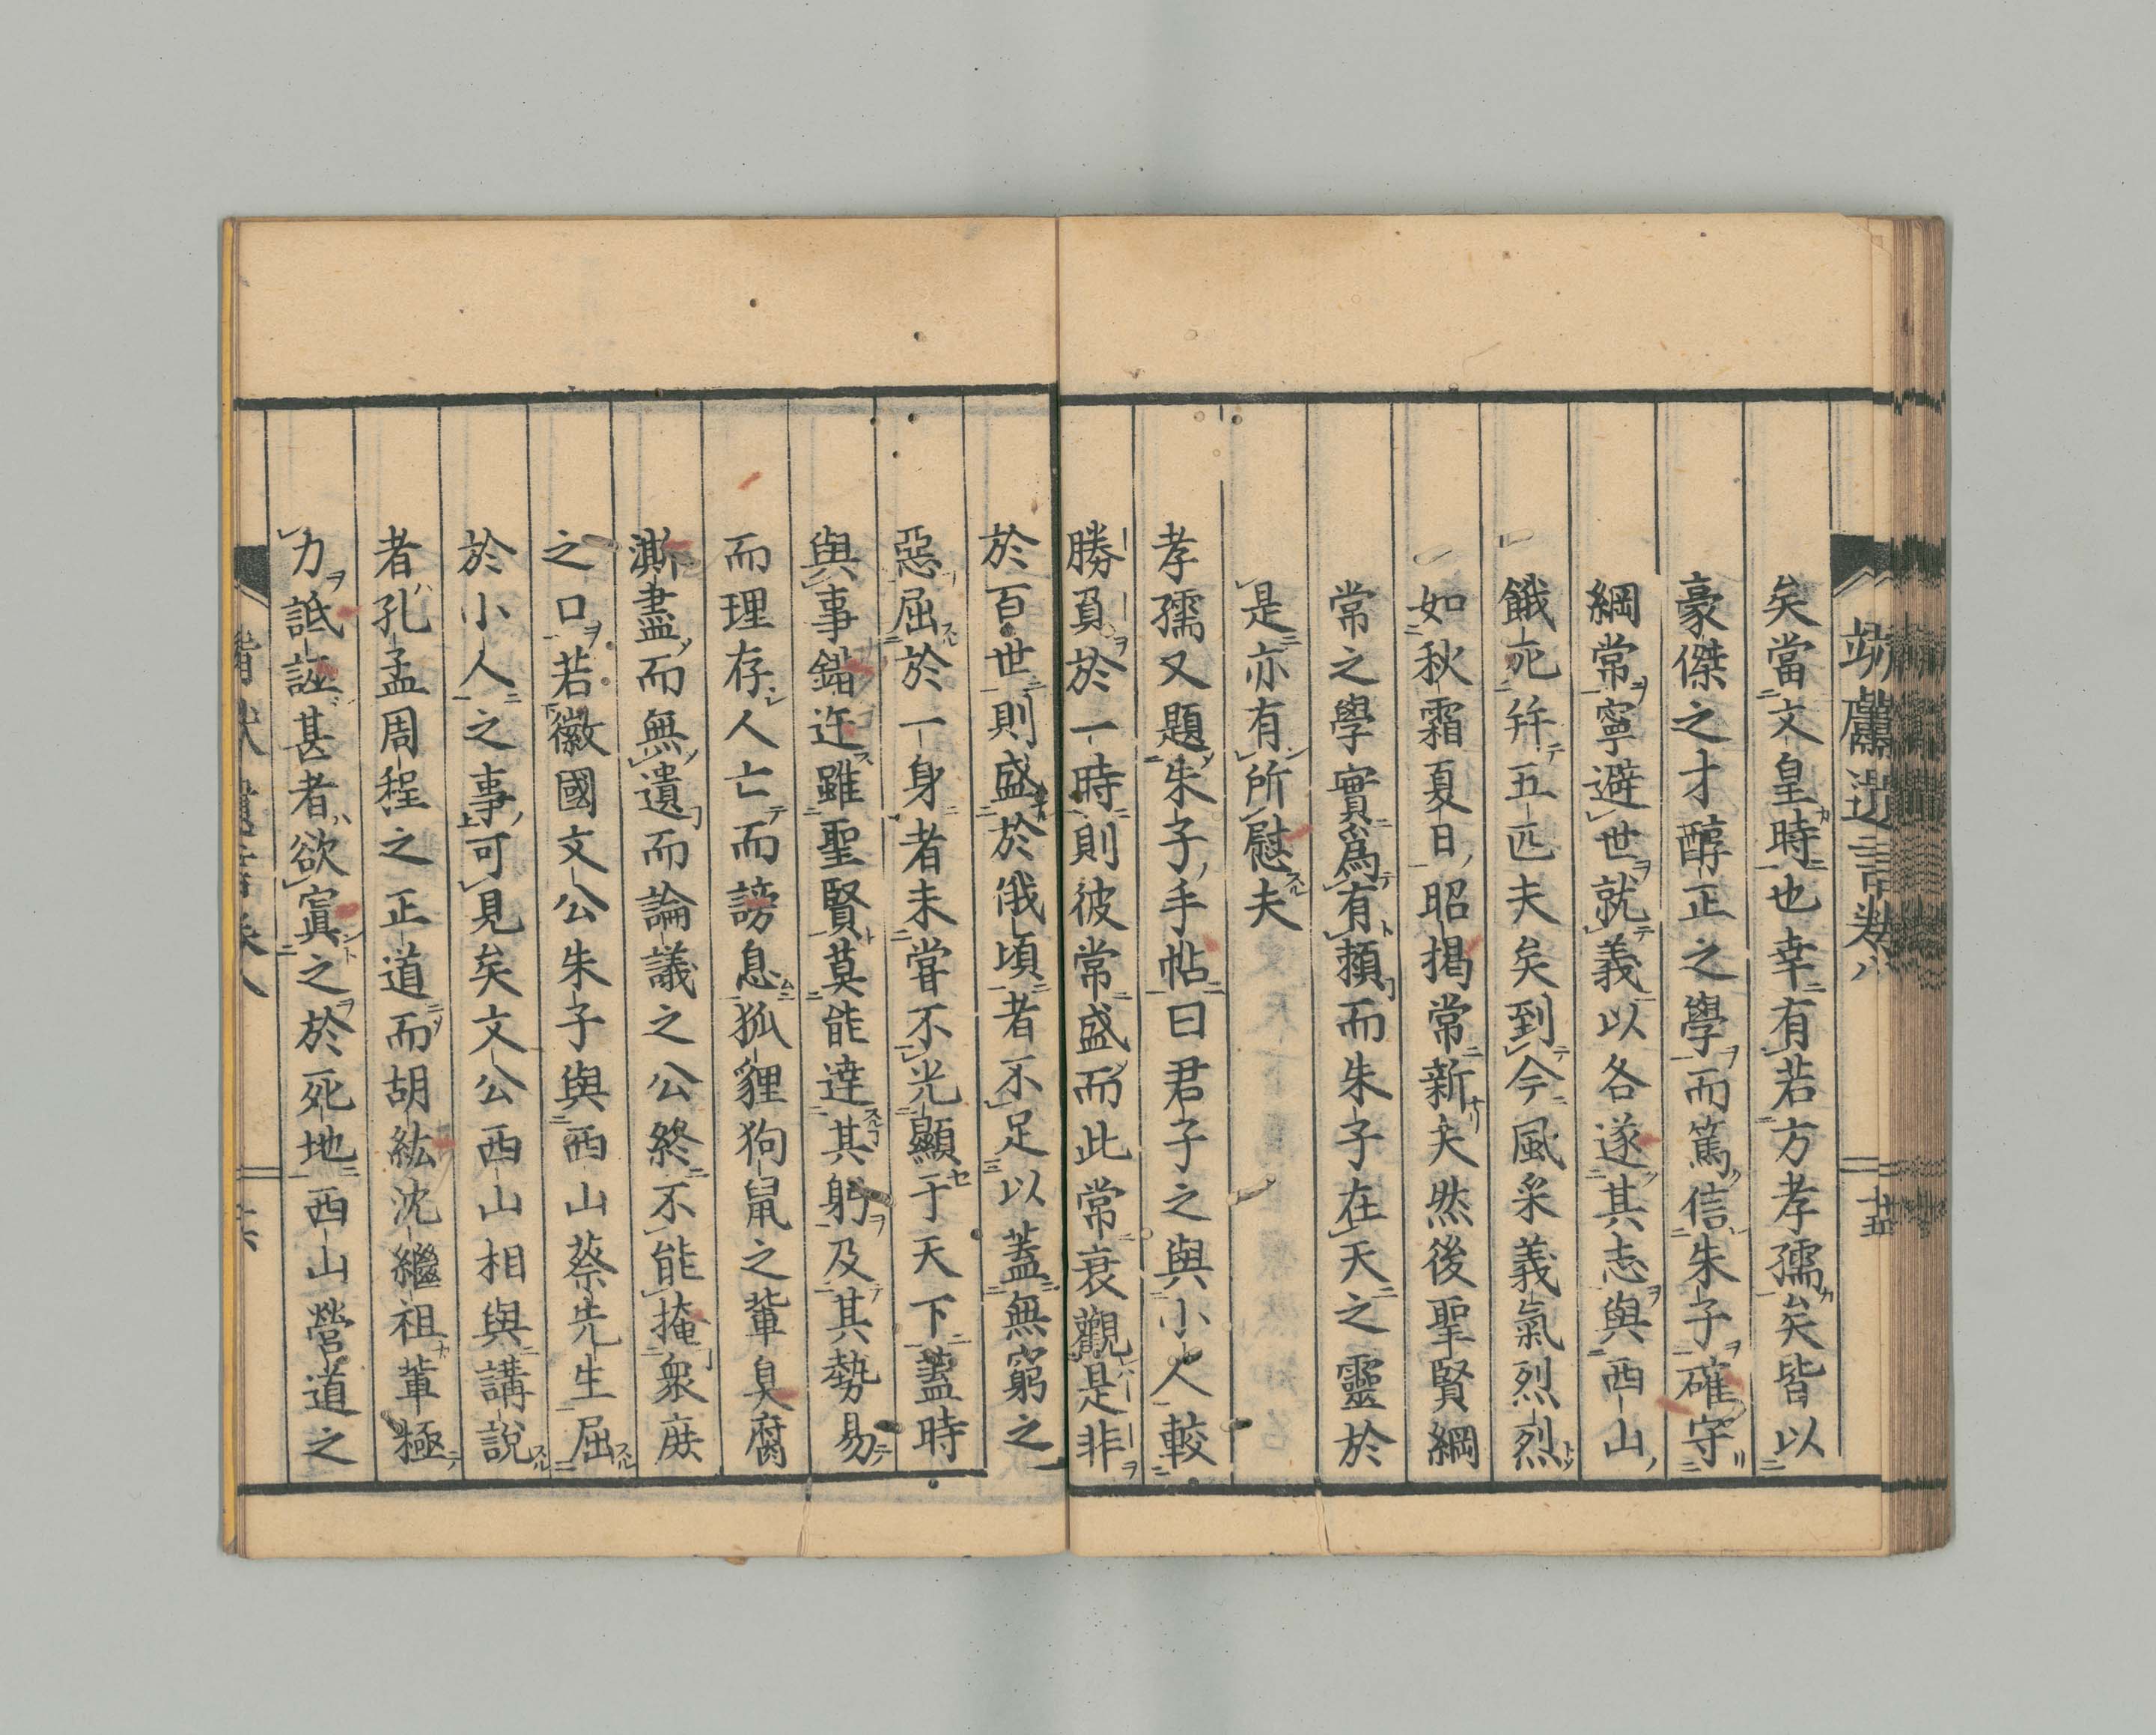 矣當文皇時也幸有若方孝孺矣皆以
豪傑之才醇正之學而篤信朱子確守
綱常寧避世就義以各遂其志與西山
餓死幷五匹夫矣到今風采義氣烈烈
如秋霜夏日昭揭常新夫然後聖賢綱
常之學實爲有賴而朱子在天之靈於
是亦有所慰夫
孝孺又題朱子手帖曰君子之與小人較
勝負於一時則彼常盛而此常衰觀是非
於百世則盛於俄頃者不足以蓋無窮之
惡屈於一身者未嘗不光顯于天下蓋時
與事錯迕雖聖賢莫能達其躬及其勢易
而理存人亡而謗息狐貍狗鼠之輩臭腐
澌盡而無遺而論議之公終不能掩衆庶
之口若徽國文公朱子與西山蔡先生屈
於小人之事可見矣文公西山相與講說
者孔孟周程之正道而胡紘沈繼祖輩極
力詆誣甚者欲寘之於死地西山營道之